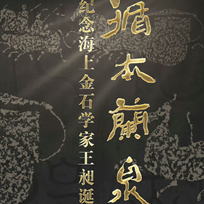 本蘭泉
纪念海上金石学家王昶诞